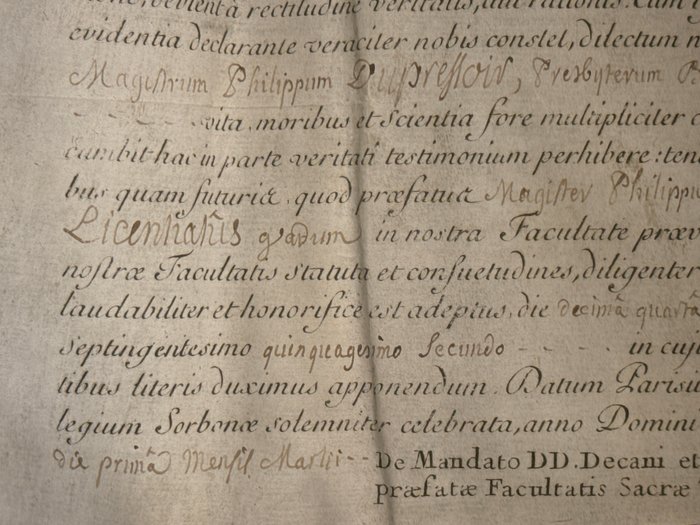 devient à rectitudine veritatis, aut rationis. Cum
evidentia declarante veraciter nobis constet, dilectum n
Magistrum Philippum Dupressoir, Presbyterum
- - - - - vita, moribus et Scientia fore multipliciter c
cumbit hac in parte veritati testimonium perhibere: ten
bus quam futuris quod præfatus Magister Philippu
Licentiatûs gradum in nostra Facultate præv
nostræ Facultatis statuta et consuetudines, diligenter
laudabiliter et honorifice est adeptus, die decimâ quartâ
septingentesimo quinquagesimo Secundo - - - - - in cuju
tibus literis duximus apponendum. Datum Parisii
legium Sorbonæ solemniter celebrata, anno Domini
die primâ Mensis Martii - - De Mandato DD. Decani et
præfatæ Facultatis Sacræ